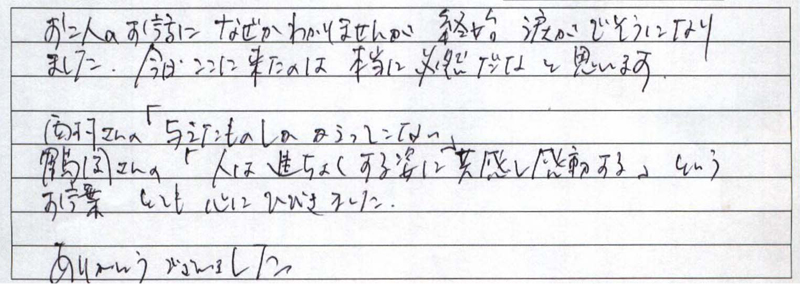 お二人のお話に なぜかわかりませんが 終始 涙がでそうになり
ました。今日ここに来たのは 本当に必然だなと思います。
西村さんの「与えたものしか かえってこない」
鶴岡さんの「人は進もうとする姿に共感し感動する」という
お言葉 とても 心に ひびきました。
ありがとうございました